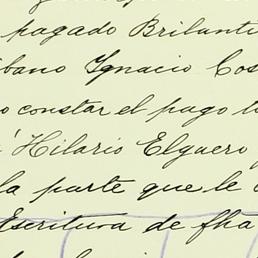 pagado Brilanti
ibano Ignacio Cos
o constar el pago t
Hilario Elguero
la parte que le
Escritura de fha